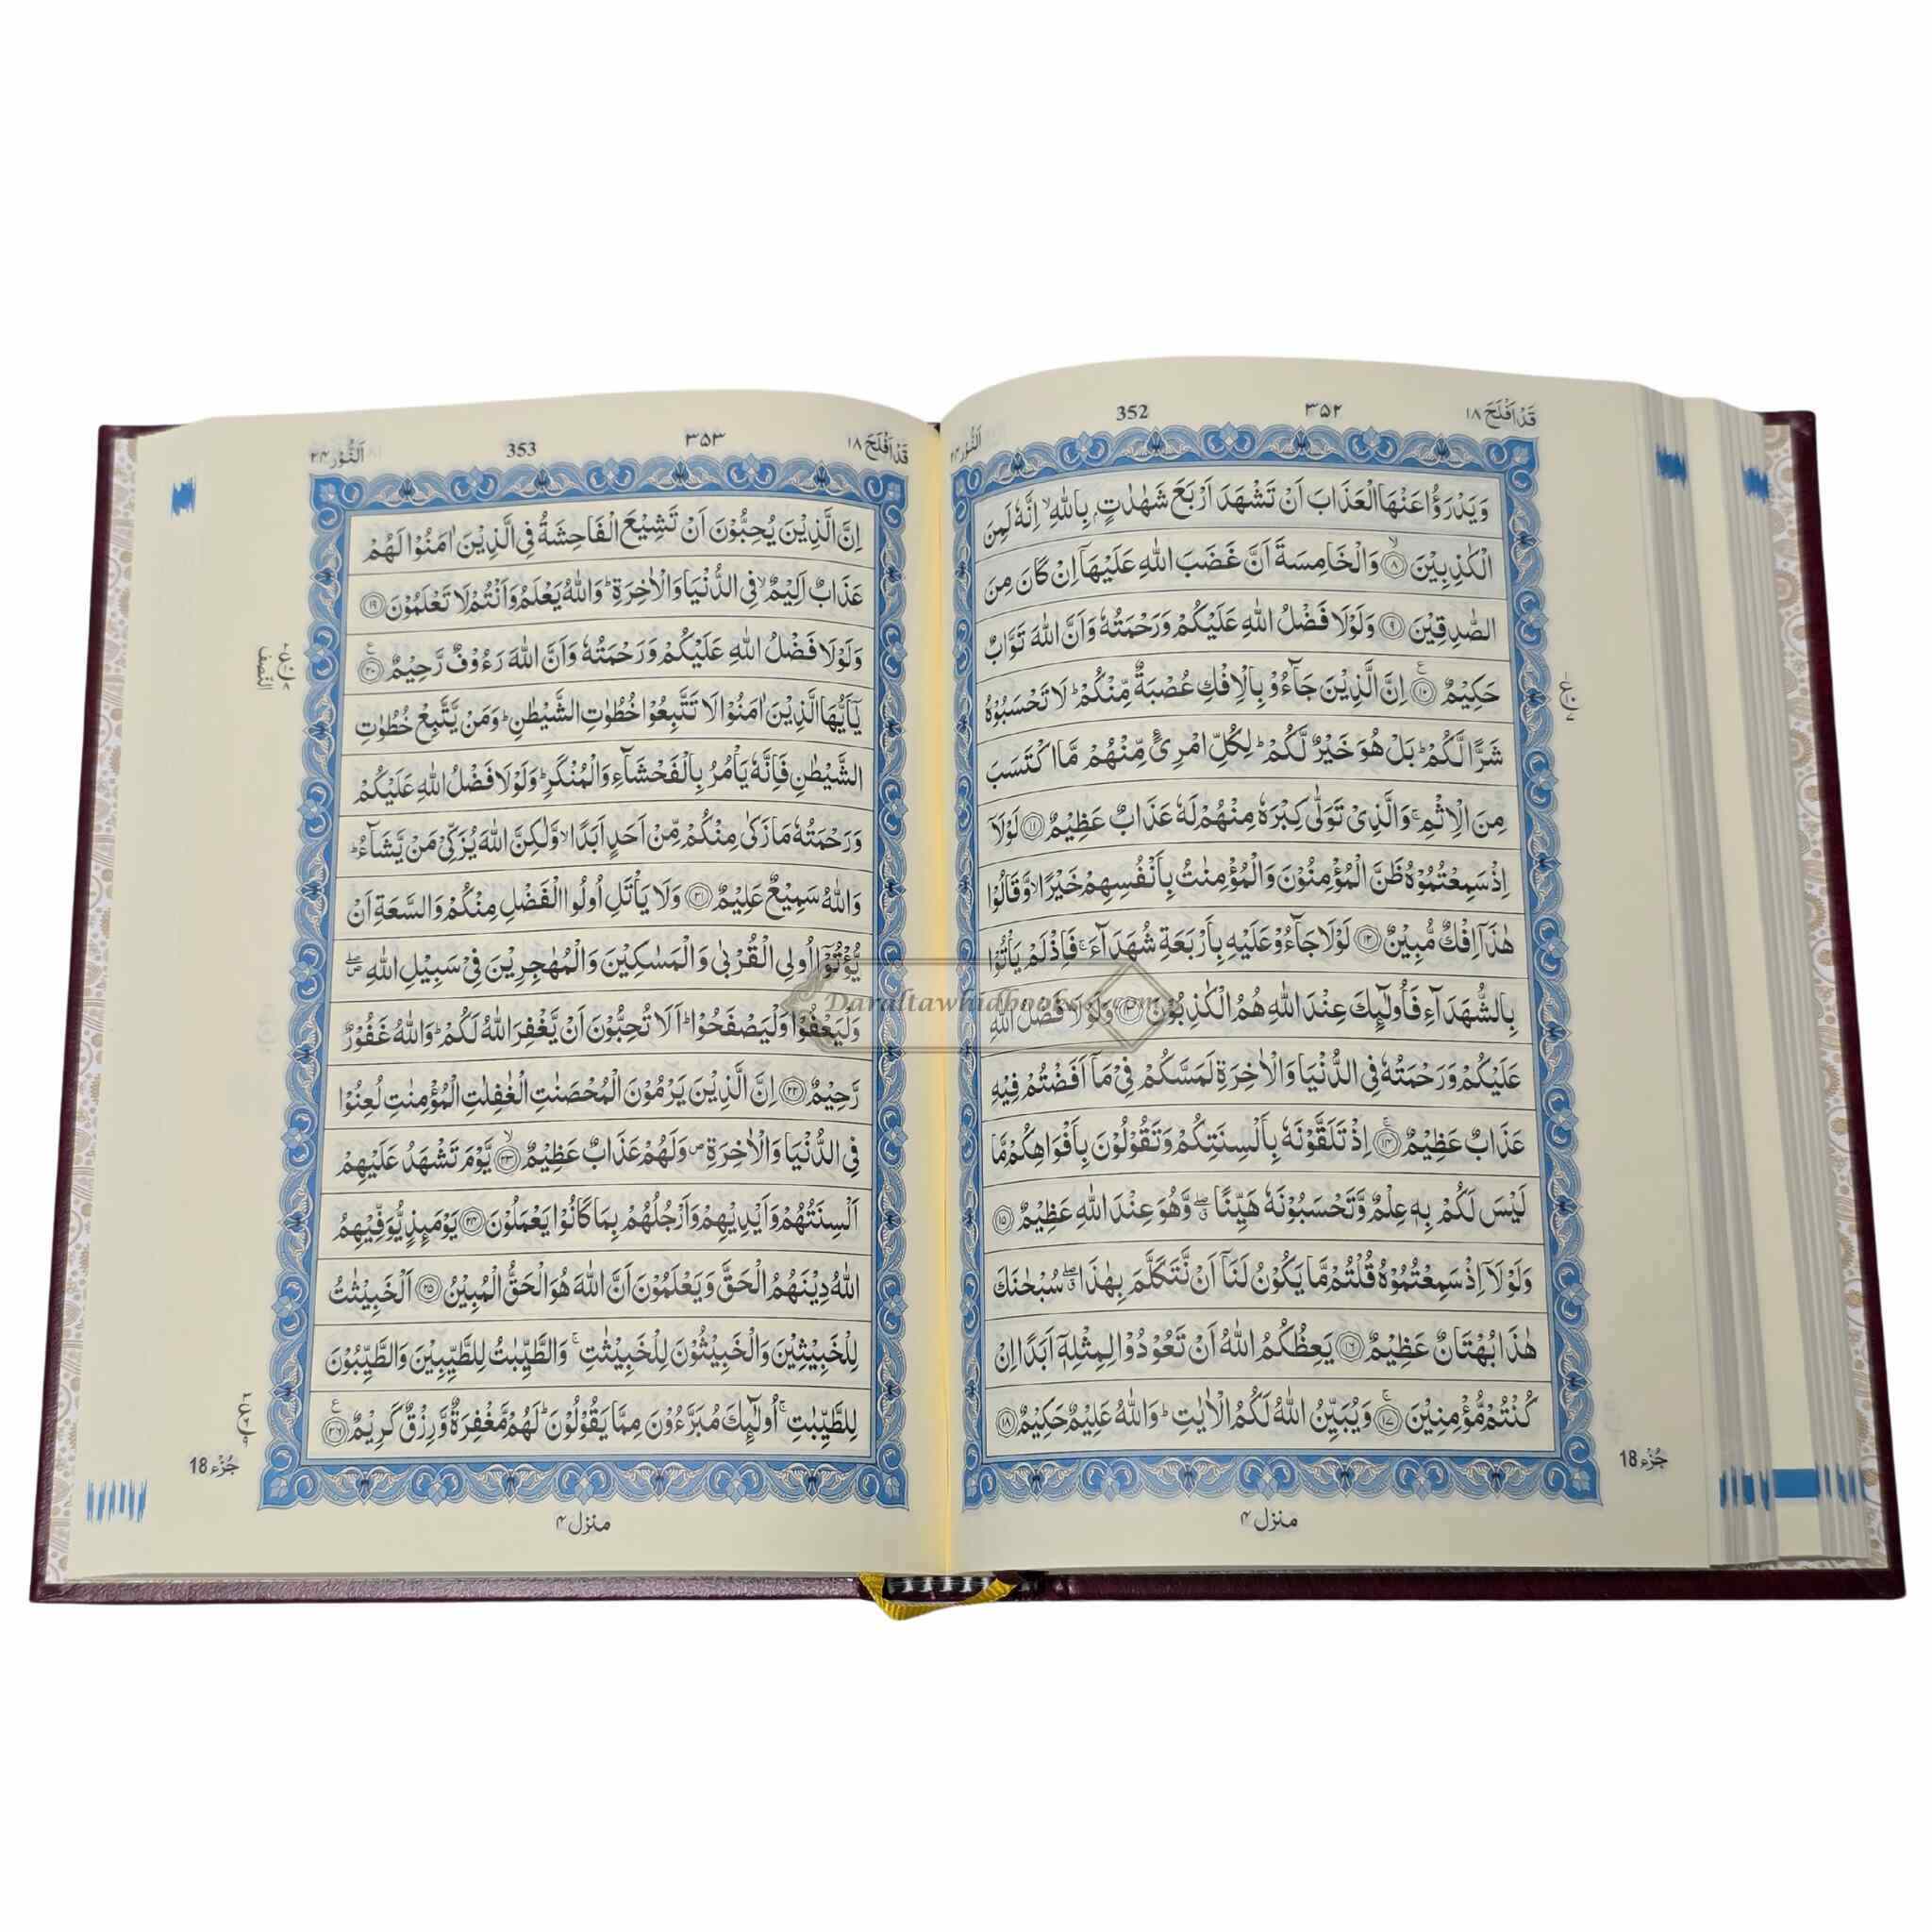 قَدْ اَفْلَحَ ١٨
٣٥٢
352
اَلنُّوْر ٢٤
وَيَدْرَؤُا عَنْهَا الْعَذَابَ اَنْ تَشْهَدَ اَرْبَعَ شَهٰدٰتٍۭ بِاللّٰهِ ۙ اِنَّهٗ لَمِنَ
الْكٰذِبِيْنَ ۙ﴿٨﴾ وَالْخَامِسَةَ اَنَّ غَضَبَ اللّٰهِ عَلَيْهَاۤ اِنْ كَانَ مِنَ
الصّٰدِقِيْنَ ﴿٩﴾ وَلَوْلَا فَضْلُ اللّٰهِ عَلَيْكُمْ وَرَحْمَتُهٗ وَاَنَّ اللّٰهَ تَوَّابٌ
حَكِيْمٌ ﴿١٠﴾ اِنَّ الَّذِيْنَ جَآءُوْ بِالْاِفْكِ عُصْبَةٌ مِّنْكُمْ ؕ لَا تَحْسَبُوْهُ
شَرًّا لَّكُمْ ؕ بَلْ هُوَ خَيْرٌ لَّكُمْ ؕ لِكُلِّ امْرِئٍ مِّنْهُمْ مَّا اكْتَسَبَ
مِنَ الْاِثْمِ ۚ وَالَّذِيْ تَوَلّٰى كِبْرَهٗ مِنْهُمْ لَهٗ عَذَابٌ عَظِيْمٌ ﴿١١﴾ لَوْلَاۤ
اِذْ سَمِعْتُمُوْهُ ظَنَّ الْمُؤْمِنُوْنَ وَالْمُؤْمِنٰتُ بِاَنْفُسِهِمْ خَيْرًا ۙ وَّقَالُوْا
هٰذَاۤ اِفْكٌ مُّبِيْنٌ ﴿١٢﴾ لَوْلَا جَآءُوْ عَلَيْهِ بِاَرْبَعَةِ شُهَدَآءَ ۚ فَاِذْ لَمْ يَاْتُوْا
بِالشُّهَدَآءِ فَاُولٰٓئِكَ عِنْدَ اللّٰهِ هُمُ الْكٰذِبُوْنَ ﴿١٣﴾ وَلَوْلَا فَضْلُ اللّٰهِ
عَلَيْكُمْ وَرَحْمَتُهٗ فِي الدُّنْيَا وَالْاٰخِرَةِ لَمَسَّكُمْ فِيْ مَاۤ اَفَضْتُمْ فِيْهِ
عَذَابٌ عَظِيْمٌ ۚ﴿١٤﴾ اِذْ تَلَقَّوْنَهٗ بِاَلْسِنَتِكُمْ وَتَقُوْلُوْنَ بِاَفْوَاهِكُمْ مَّا
لَيْسَ لَكُمْ بِهٖ عِلْمٌ وَّتَحْسَبُوْنَهٗ هَيِّنًا ۖ وَّهُوَ عِنْدَ اللّٰهِ عَظِيْمٌ ﴿١٥﴾
وَلَوْلَاۤ اِذْ سَمِعْتُمُوْهُ قُلْتُمْ مَّا يَكُوْنُ لَنَاۤ اَنْ نَّتَكَلَّمَ بِهٰذَا ۖ سُبْحٰنَكَ
هٰذَا بُهْتَانٌ عَظِيْمٌ ﴿١٦﴾ يَعِظُكُمُ اللّٰهُ اَنْ تَعُوْدُوْا لِمِثْلِهٖۤ اَبَدًا اِنْ
كُنْتُمْ مُّؤْمِنِيْنَ ۚ﴿١٧﴾ وَيُبَيِّنُ اللّٰهُ لَكُمُ الْاٰيٰتِ ؕ وَاللّٰهُ عَلِيْمٌ حَكِيْمٌ ﴿١٨﴾
جُزْء 18
منزل ٤
قَدْ اَفْلَحَ ١٨
٣٥٣
353
اَلنُّوْر ٢٤
اِنَّ الَّذِيْنَ يُحِبُّوْنَ اَنْ تَشِيْعَ الْفَاحِشَةُ فِي الَّذِيْنَ اٰمَنُوْا لَهُمْ
عَذَابٌ اَلِيْمٌ ۙ فِي الدُّنْيَا وَالْاٰخِرَةِ ؕ وَاللّٰهُ يَعْلَمُ وَاَنْتُمْ لَا تَعْلَمُوْنَ ﴿١٩﴾
وَلَوْلَا فَضْلُ اللّٰهِ عَلَيْكُمْ وَرَحْمَتُهٗ وَاَنَّ اللّٰهَ رَءُوْفٌ رَّحِيْمٌ ﴿٢٠﴾
يٰۤاَيُّهَا الَّذِيْنَ اٰمَنُوْا لَا تَتَّبِعُوْا خُطُوٰتِ الشَّيْطٰنِ ؕ وَمَنْ يَّتَّبِعْ خُطُوٰتِ
الشَّيْطٰنِ فَاِنَّهٗ يَاْمُرُ بِالْفَحْشَآءِ وَالْمُنْكَرِ ؕ وَلَوْلَا فَضْلُ اللّٰهِ عَلَيْكُمْ
وَرَحْمَتُهٗ مَا زَكٰى مِنْكُمْ مِّنْ اَحَدٍ اَبَدًا ۙ وَّلٰكِنَّ اللّٰهَ يُزَكِّيْ مَنْ يَّشَآءُ ؕ
وَاللّٰهُ سَمِيْعٌ عَلِيْمٌ ﴿٢١﴾ وَلَا يَاْتَلِ اُولُوا الْفَضْلِ مِنْكُمْ وَالسَّعَةِ اَنْ
يُّؤْتُوْۤا اُولِي الْقُرْبٰى وَالْمَسٰكِيْنَ وَالْمُهٰجِرِيْنَ فِيْ سَبِيْلِ اللّٰهِ ۖ
وَلْيَعْفُوْا وَلْيَصْفَحُوْا ؕ اَلَا تُحِبُّوْنَ اَنْ يَّغْفِرَ اللّٰهُ لَكُمْ ؕ وَاللّٰهُ غَفُوْرٌ
رَّحِيْمٌ ﴿٢٢﴾ اِنَّ الَّذِيْنَ يَرْمُوْنَ الْمُحْصَنٰتِ الْغٰفِلٰتِ الْمُؤْمِنٰتِ لُعِنُوْا
فِي الدُّنْيَا وَالْاٰخِرَةِ ۪ وَلَهُمْ عَذَابٌ عَظِيْمٌ ۙ﴿٢٣﴾ يَّوْمَ تَشْهَدُ عَلَيْهِمْ
اَلْسِنَتُهُمْ وَاَيْدِيْهِمْ وَاَرْجُلُهُمْ بِمَا كَانُوْا يَعْمَلُوْنَ ﴿٢٤﴾ يَوْمَئِذٍ يُّوَفِّيْهِمُ
اللّٰهُ دِيْنَهُمُ الْحَقَّ وَيَعْلَمُوْنَ اَنَّ اللّٰهَ هُوَ الْحَقُّ الْمُبِيْنُ ﴿٢٥﴾ اَلْخَبِيْثٰتُ
لِلْخَبِيْثِيْنَ وَالْخَبِيْثُوْنَ لِلْخَبِيْثٰتِ ۚ وَالطَّيِّبٰتُ لِلطَّيِّبِيْنَ وَالطَّيِّبُوْنَ
لِلطَّيِّبٰتِ ۚ اُولٰٓئِكَ مُبَرَّءُوْنَ مِمَّا يَقُوْلُوْنَ ؕ لَهُمْ مَّغْفِرَةٌ وَّرِزْقٌ كَرِيْمٌ ﴿٢٦﴾
النصف
جُزْء 18
منزل ٤
Daraltawhidbooks.com